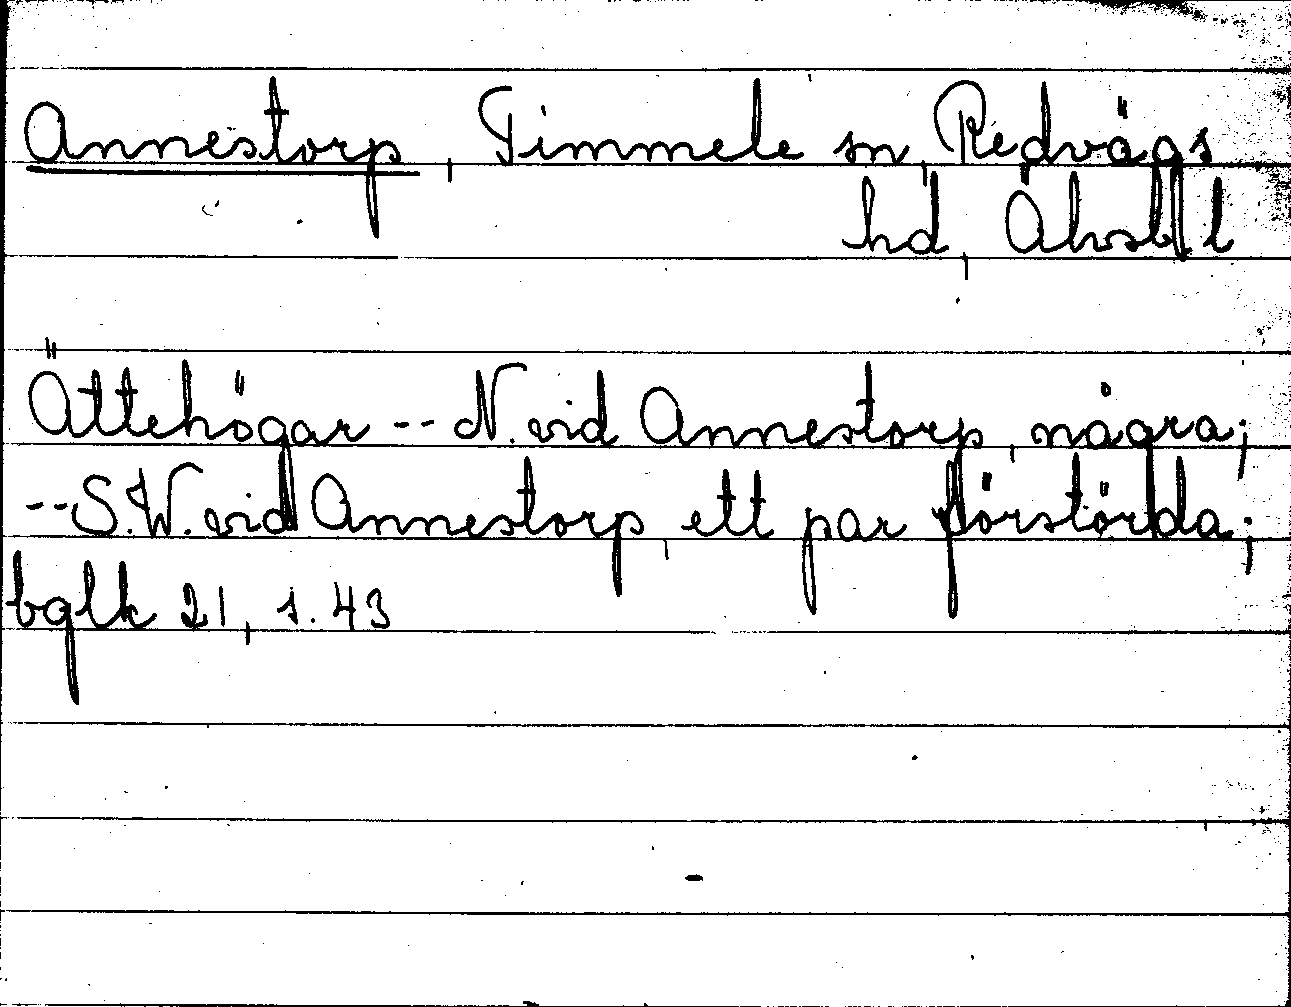 Annestorp, Timmele sn, Redvägs
hd, Älvsbg l
Ättehögar -- N. vid Annestorp, några;
-- S.W. vid Annestorp, ett par förstörda;
bglk 21, s. 43